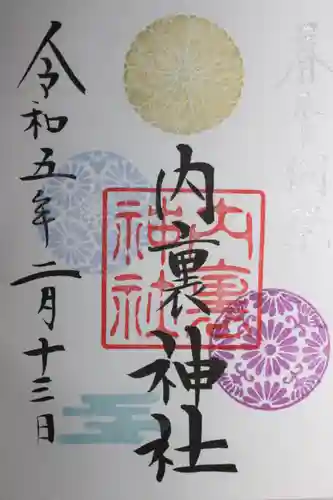 内裏神社
内裏
神社
令和五年二月十三日